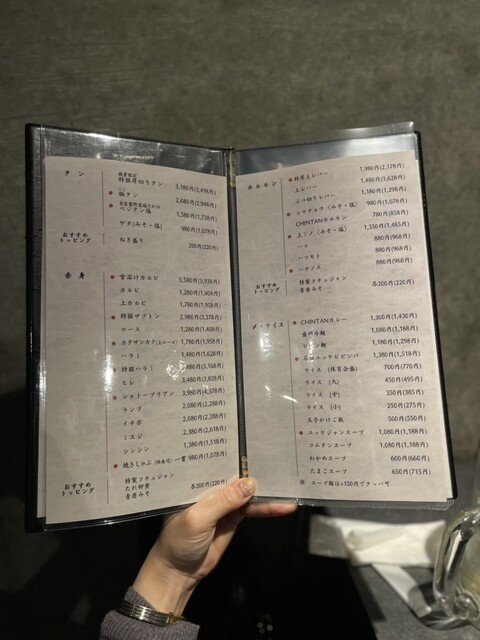 タン
数量限定
特撰厚切りタン 3,180円(3,498円)
極タン 2,680円(2,948円)
自家製野菜塩だれの
ベジタン塩 1,580円(1,738円)
ゲタ(みそ・塩) 980円(1,078円)
おすすめ
トッピング
ねぎ盛り 200円(220円)
赤身
雪溶けカルビ 3,580円(3,938円)
カルビ 1,280円(1,408円)
上カルビ 1,780円(1,958円)
特撰ザブトン 2,980円(3,278円)
ロース 1,280円(1,408円)
カタサンカク(上ロース) 1,780円(1,958円)
ハラミ 1,480円(1,628円)
特撰ハラミ 2,880円(3,168円)
ヒレ 3,480円(3,828円)
シャトーブリアン 3,980円(4,378円)
ランプ 2,080円(2,288円)
イチボ 2,080円(2,288円)
ミスジ 2,380円(2,618円)
シンシン 1,380円(1,518円)
焼きしゃぶ(肉寿司)一貫 980円(1,078円)
おすすめ
トッピング
特製コチュジャン
だれ卵黄
青唐みそ
各200円(220円)
ホルモン
特厚上レバー 1,980円(2,178円)
上レバー 1,480円(1,628円)
ぶつ切りレバー 1,180円(1,298円)
シマチョウ(みそ・塩) 980円(1,078円)
CHINTANホルモン 780円(858円)
上ミノ(みそ・塩) 1,350円(1,485円)
ハツ 880円(968円)
ハツモト 880円(968円)
ハチノス 880円(968円)
おすすめ
トッピング
特製コチュジャン
青唐みそ
各200円(220円)
〆・ライス
CHINTANカレー 1,300円(1,430円)
盛岡冷麺 1,080円(1,188円)
ビビン麺 1,180円(1,298円)
石焼ユッケビビンバ 1,380円(1,518円)
ライス(体育会盛) 700円(770円)
ライス(大) 450円(495円)
ライス(中) 350円(385円)
ライス(小) 250円(275円)
玉子かけご飯 500円(550円)
ユッケジャンスープ 1,080円(1,188円)
コムタンスープ 1,080円(1,188円)
わかめスープ 600円(660円)
たまごスープ 650円(715円)
※ スープ類は+150円でクッパ可